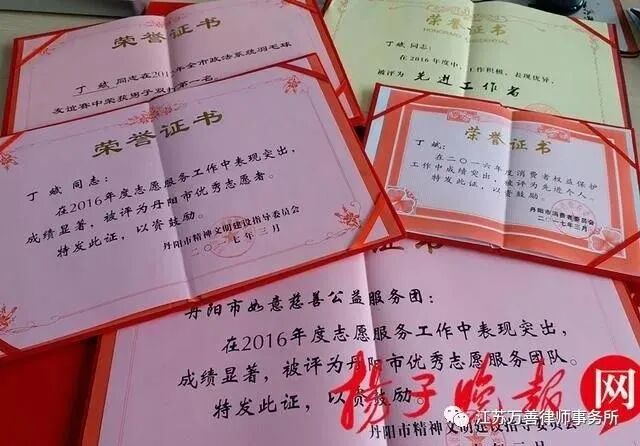 荣誉证书
丁斌 同志在2012年全市政法系统羽毛球
友谊赛中荣获男子双打第一名。
荣誉证书
丁斌同志：
在2016年度中，工作积极，表现优异，
被评为 先进工作者
荣誉证书
丁斌 同志：
在2016年度志愿服务工作中表现突出，
成绩显著，被评为丹阳市优秀志愿者。
特发此证，以资鼓励。
丹阳市精神文明建设指导委员会
二〇一七年三月
荣誉证书
丁斌：
在二〇一六年度消费者权益保护
工作中成绩突出，被评为先进个人。
特发此证，以资鼓励。
丹阳市消费者委员会
二〇一七年三月
证书
丹阳市如意慈善公益服务团：
在2016年度志愿服务工作中表现突出，
成绩显著，被评为丹阳市优秀志愿服务团队。
特发此证，以资鼓励。
丹阳市精神文明建设指导委员会
扬子晚报网
江苏万善律师事务所